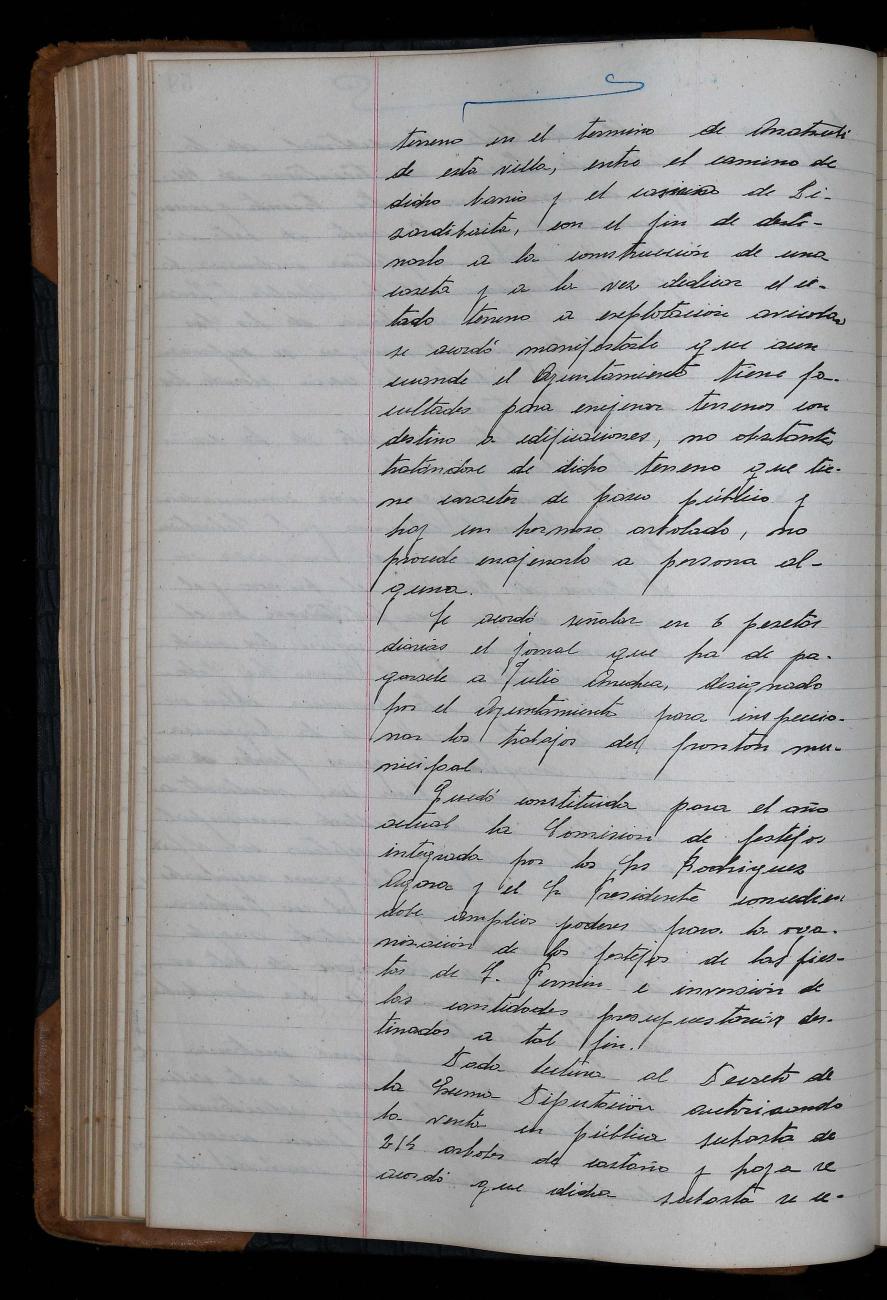 terreno en el termino de
de esta villa, entre el camino de
dicho barrio y el camino de Li-
zardibaita, con el fin de desti-
narlo a la construcción de una
caseta y a la vez dedicar el ci-
tado terreno a explotación avicola
se acordó manifestarle que aun
cuando el Ayuntamiento tiene fa-
cultades para enajenar terrenos con
destino a edificaciones, no obstante
tratándose de dicho terreno que tie-
ne caracter de paseo público y
hay un hermoso arbolado, no
procede enajenarlo a persona al-
guna.
Se acordó señalar en 6 pesetas
diarias el jornal que ha de pa-
garsele a Julio designado
por el Ayuntamiento para inspeccio-
nar los trabajos del fronton mu-
nicipal.
Quedó constituida para el año
actual la Comision de festejos
integrada por los Srs Rodriguez
y el Sr Presidente concedien
dole amplios poderes para la orga-
nisación de los festejos de las fies-
tas de S. Fermin e inversión de
las cantidades presupuestarias des-
tinadas a tal fin.
Dada lectura al Decreto de
la Exma Diputación autorisando
la venta en pública subasta de
214 arboles de castaño y haya se
acordó que dicha subasta se ce-